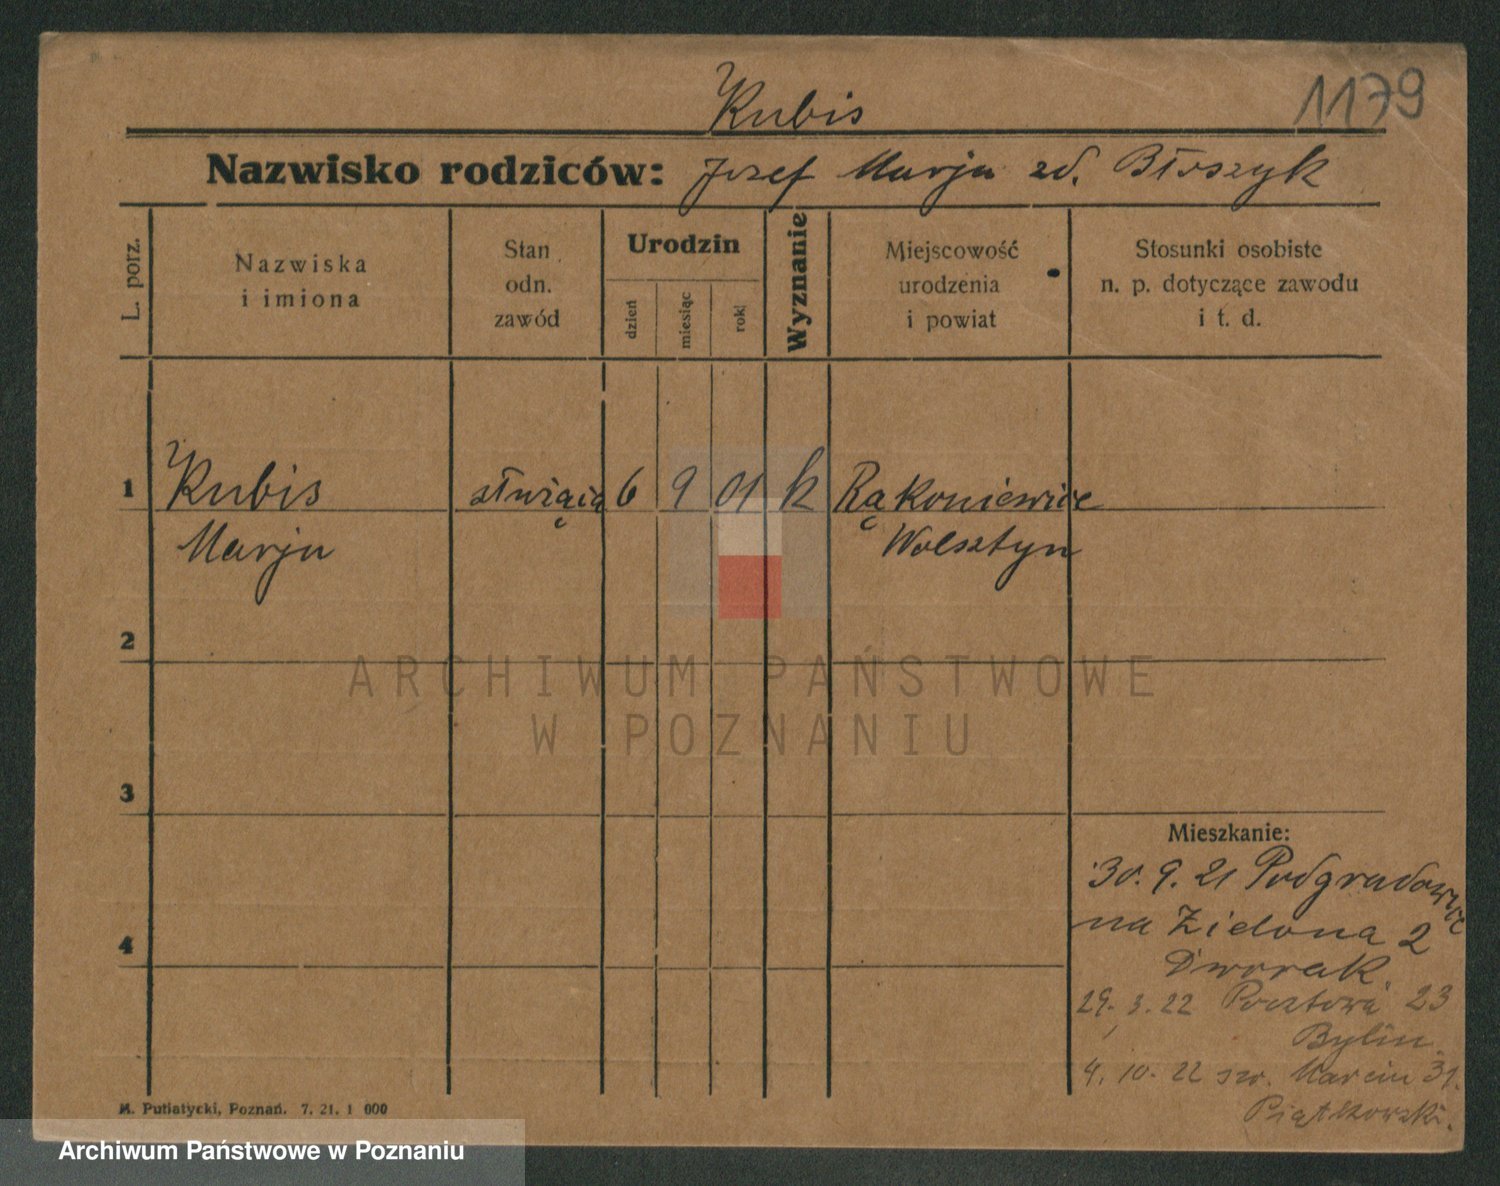 Kubis
1179
Nazwisko rodziców: Jozef Marja zd. Błoszyk
L. porz.
Nazwiska
i imiona
Stan
odn.
zawód
Urodzin
dzień
miesiąc
rok
Wyznanie
Miejscowość
urodzenia
i powiat
Stosunki osobiste
n. p. dotyczące zawodu
i t. d.
1 Kubis służąca 6 9 01 k Rąkoniewice
Marja Wolsztyn
2
3
4
ARCHIWUM PAŃSTWOWE
W POZNANIU
Mieszkanie:
30. 9. 21 Podgradowice
na Zielona 2
Dworak
29. 3. 22 Pocztowa 23
Bylin
4. 10. 22 św. Marcin 31.
Piątkowski.
M. Putiatycki, Poznań. 7. 21. 1 000
Archiwum Państwowe w Poznaniu